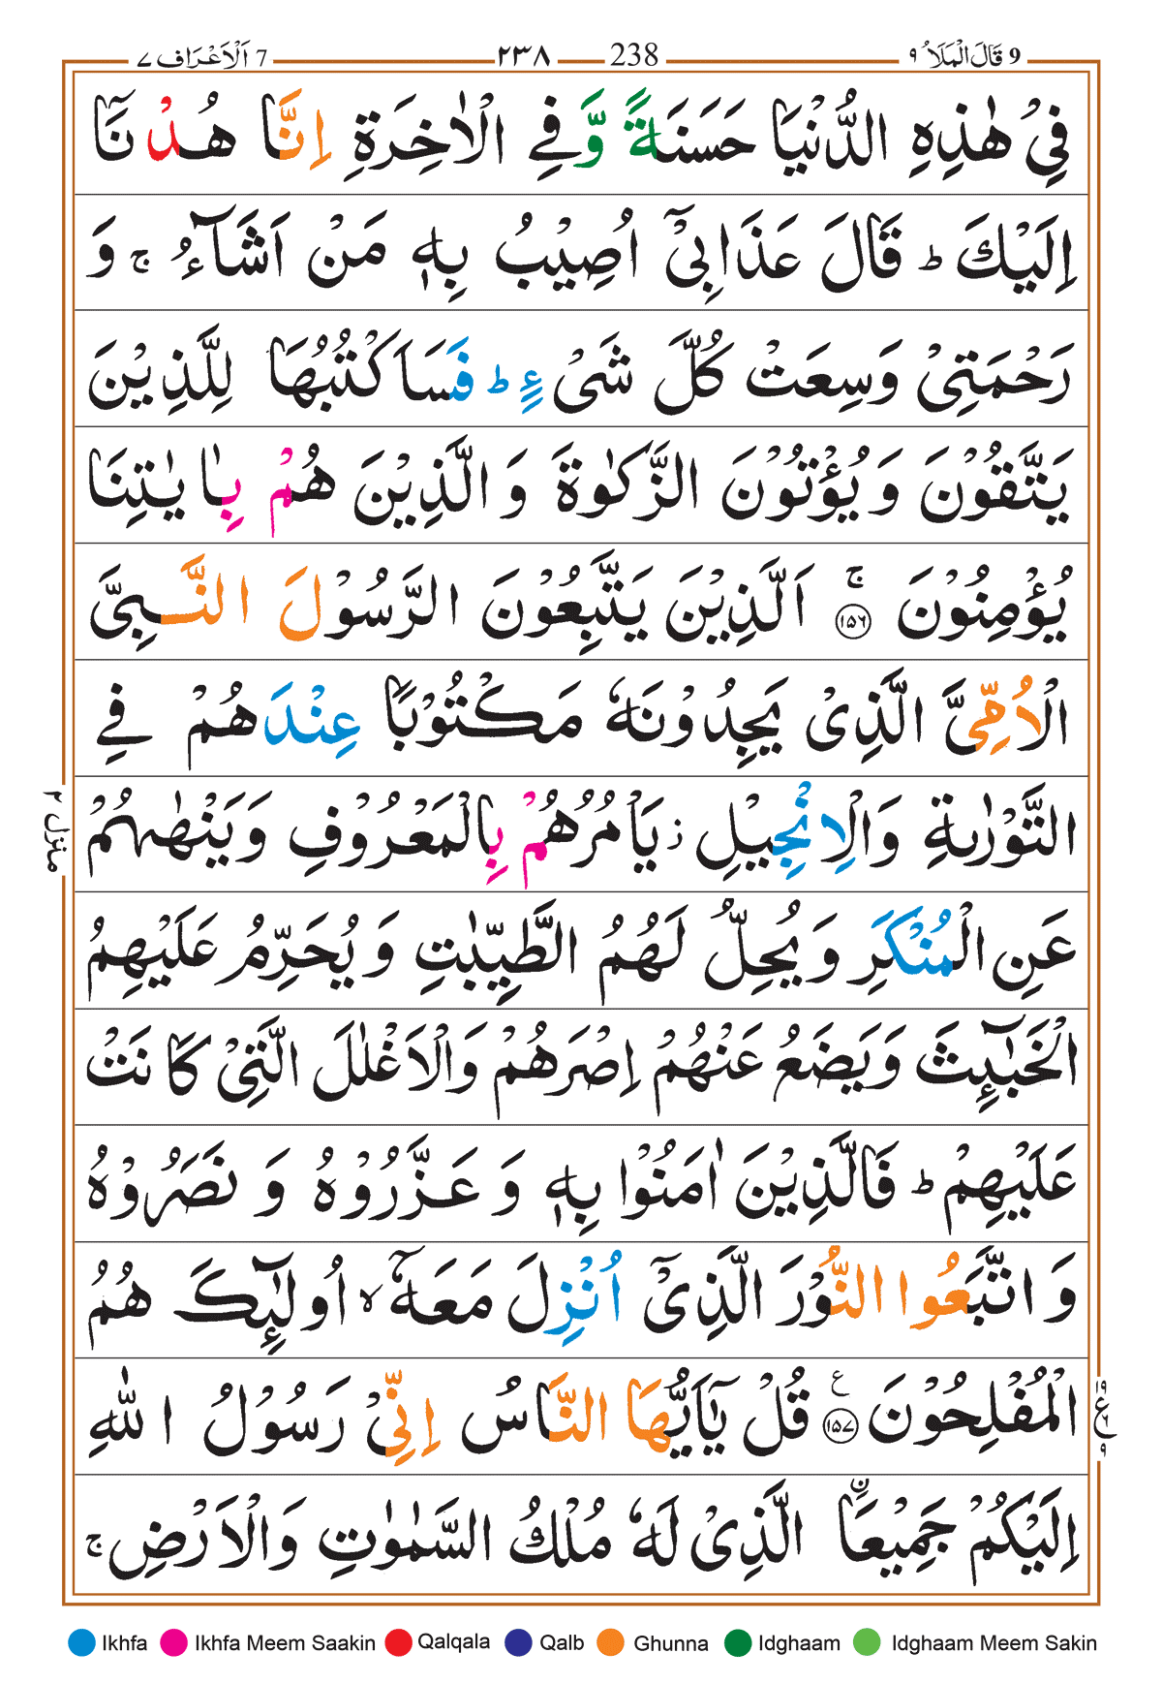 7 اَلْاَعْرَاف ٧ ٢٣٨ 238 9 قَالَ الْمَلَاُ ٩
فِىْ هٰذِهِ الدُّنْيَا حَسَنَةً وَّفِى الْاٰخِرَةِ اِنَّا هُدْنَآ
اِلَيْكَ ؕ قَالَ عَذَابِىْۤ اُصِيْبُ بِهٖ مَنْ اَشَآءُ ۚ وَ
رَحْمَتِىْ وَسِعَتْ كُلَّ شَىْءٍ ؕ فَسَاَكْتُبُهَا لِلَّذِيْنَ
يَتَّقُوْنَ وَيُؤْتُوْنَ الزَّكٰوةَ وَ الَّذِيْنَ هُمْ بِاٰيٰتِنَا
يُؤْمِنُوْنَ ۚ ١٥٦ اَلَّذِيْنَ يَتَّبِعُوْنَ الرَّسُوْلَ النَّبِىَّ
الْاُمِّىَّ الَّذِىْ يَجِدُوْنَهٗ مَكْتُوْبًا عِنْدَهُمْ فِى
التَّوْرٰىةِ وَالْاِنْجِيْلِ ز يَاْمُرُهُمْ بِالْمَعْرُوْفِ وَيَنْهٰىهُمْ
عَنِ الْمُنْكَرِ وَيُحِلُّ لَهُمُ الطَّيِّبٰتِ وَيُحَرِّمُ عَلَيْهِمُ
الْخَبٰٓئِثَ وَيَضَعُ عَنْهُمْ اِصْرَهُمْ وَالْاَغْلٰلَ الَّتِىْ كَانَتْ
عَلَيْهِمْ ؕ فَالَّذِيْنَ اٰمَنُوْا بِهٖ وَ عَزَّرُوْهُ وَ نَصَرُوْهُ
وَ اتَّبَعُوا النُّوْرَ الَّذِىْۤ اُنْزِلَ مَعَهٗۤ ۙ اُولٰٓئِكَ هُمُ
الْمُفْلِحُوْنَ ع ١٥٧ قُلْ يٰۤاَيُّهَا النَّاسُ اِنِّىْ رَسُوْلُ اللّٰهِ
اِلَيْكُمْ جَمِيْعَا ۨ الَّذِىْ لَهٗ مُلْكُ السَّمٰوٰتِ وَالْاَرْضِ ۚ
منزل ٢
١٩
ع
٩
Ikhfa Ikhfa Meem Saakin Qalqala Qalb Ghunna Idghaam Idghaam Meem Sakin